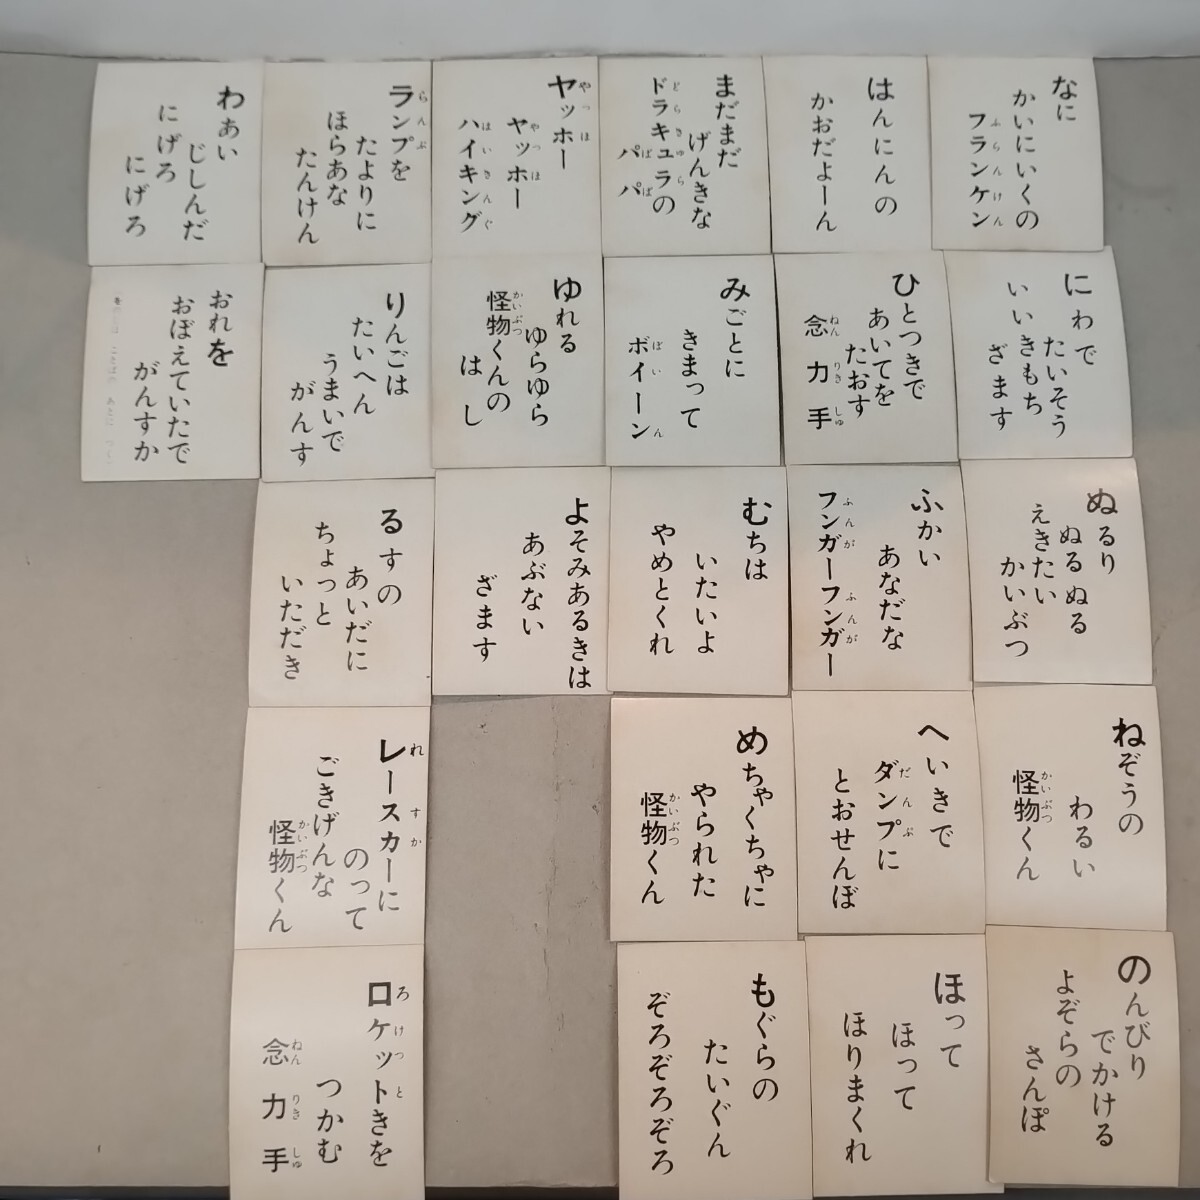 なに
かいにいくの
フランケン
ふらんけん
にわで
たいそう
いいきもち
ざます
ぬるり
ぬるぬる
えきたい
かいぶつ
ねぞうの
わるい
怪物くん
かいぶつ
のんびり
でかける
よぞらの
さんぽ
はんにんの
かおだよーん
ひとつきで
あいてを
たおす
念力手
ねんりきしゅ
ふかい
あなだな
フンガーフンガー
ふんが ふんが
へいきで
ダンプに
だんぷ
とおせんぼ
ほって
ほって
ほりまくれ
まだまだ
げんきな
ドラキュラの
どらきゅら
パパ
ぱぱ
みごとに
きまって
ボイーン
ぼいん
むちは
いたいよ
やめとくれ
めちゃくちゃに
やられた
怪物くん
かいぶつ
もぐらの
たいぐん
ぞろぞろぞろ
ヤッホー
やっほ
ヤッホー
やっほ
ハイキング
はいきんぐ
ゆれる
ゆらゆら
怪物くんの
かいぶつ
はし
よそみあるきは
あぶない
ざます
ランプを
らんぷ
たよりに
ほらあな
たんけん
りんごは
たいへん
うまいで
がんす
るすの
あいだに
ちょっと
いただき
レースカーに
れすか
のって
ごきげんな
怪物くん
かいぶつ
ロケットきを
ろけっと
つかむ
念力手
ねんりきしゅ
わあい
じしんだ
にげろ
にげろ
おれを
おぼえていたで
がんすか